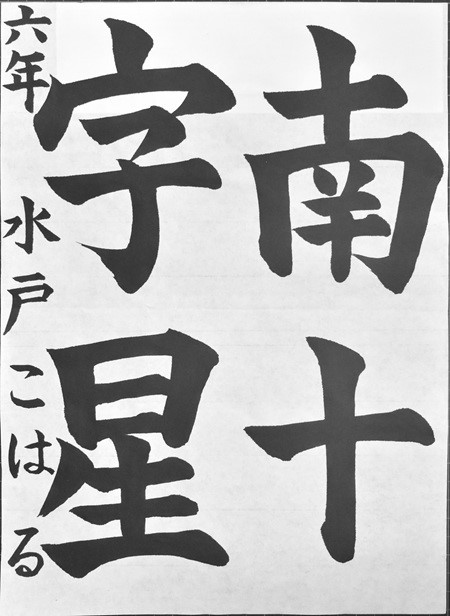 南十
字星
六年 水戸こはる